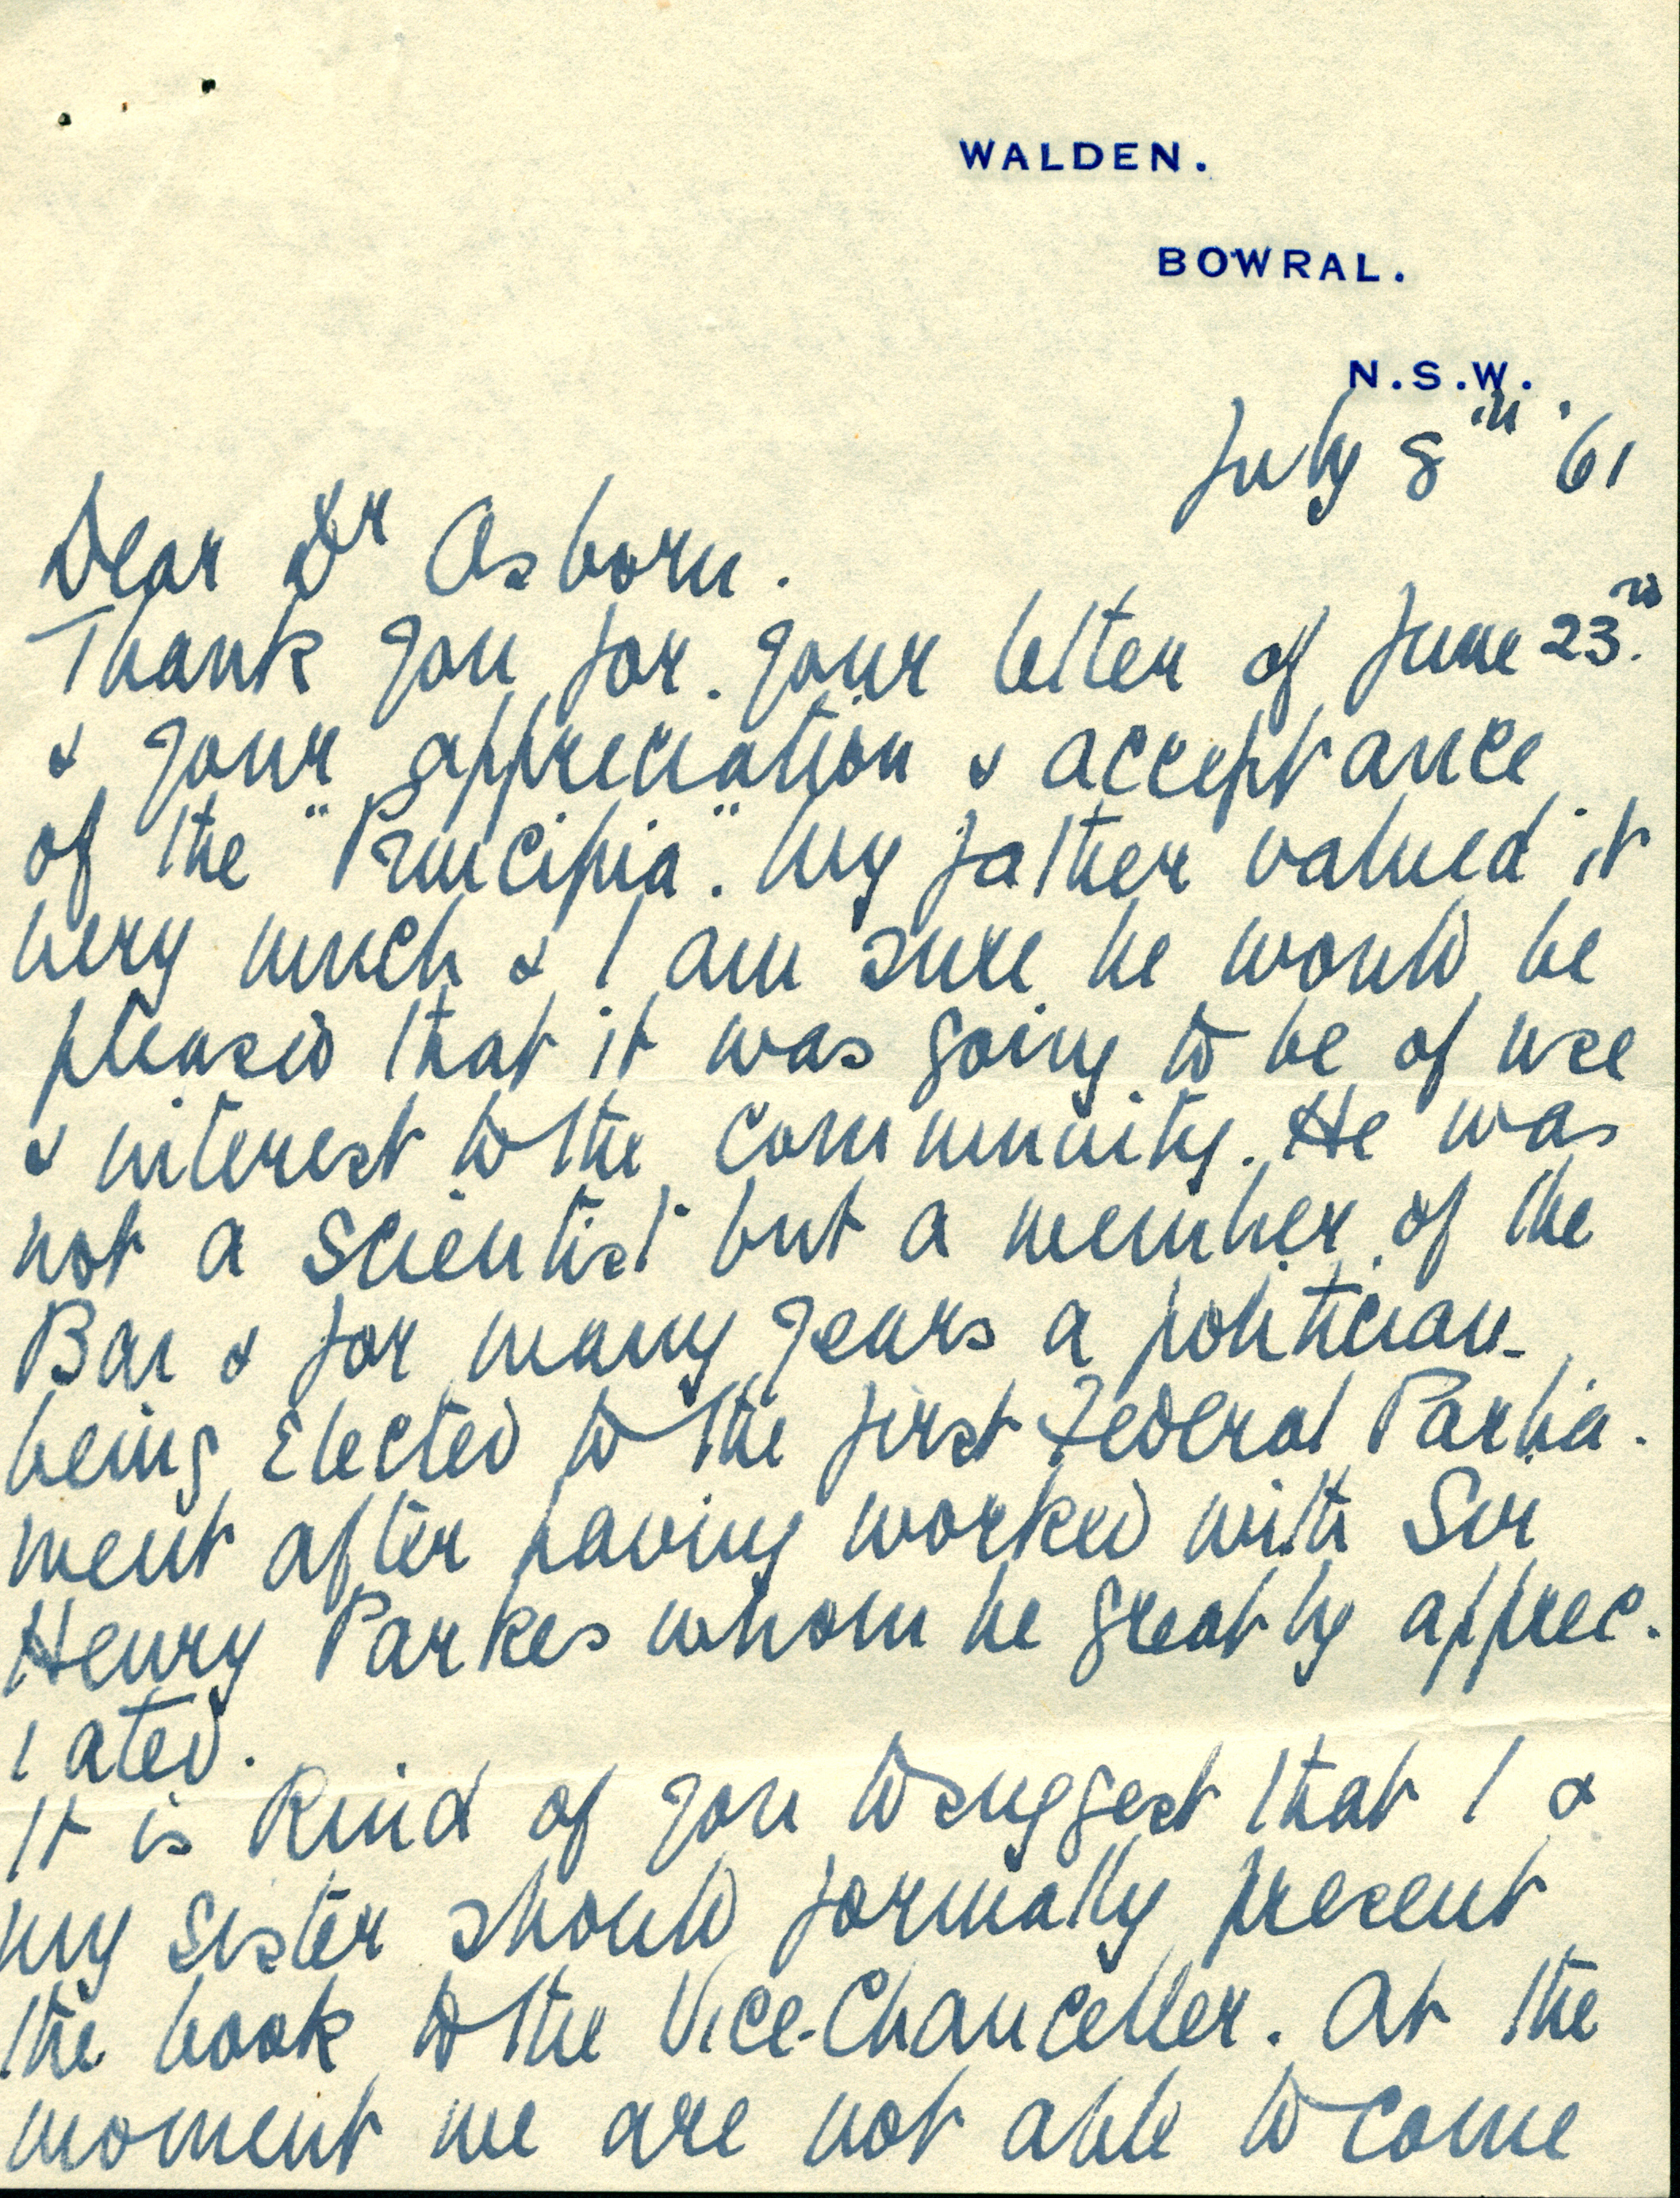 WALDEN.
BOWRAL.
N.S.W.
July 8th '61
Dear Dr Osborn.
Thank you for your letter of June 23rd.
& your appreciation & acceptance
of the "Principia". My father valued it
very much & I am sure he would be
pleased that it was going to be of use
& interest to the community. He was
not a scientist but a member of the
Bar & for many years a politician-
being elected to the first Federal Parlia-
ment after having worked with Sir
Henry Parkes whom he greatly apprec-
iated.
It is kind of you to suggest that I &
my sister should formally present
the book to the Vice-Chanceller. At the
moment we are not able to come